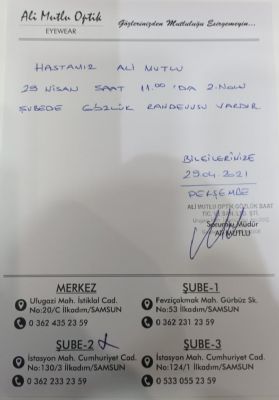 Ali Mutlu Optik
EYEWEAR
Gözlerinizden Mutluluğu Esirgemeyin...
HASTAMIZ ALİ MUTLU
29 NİSAN SAAT 11.00'DA 2.NOLU
ŞUBEDE GÖZLÜK RANDEVUSU VARDIR
BİLGİLERİNİZE
29.04.2021
PERŞEMBE
ALİ MUTLU OPTİK GÖZLÜK SAAT
Sorumlu Müdür
Ali MUTLU
MERKEZ
Ulugazi Mah. İstiklal Cad.
No:20/C İlkadım/SAMSUN
0 362 435 23 59
ŞUBE-1
Fevziçakmak Mah. Gürbüz Sk.
No:53 İlkadım/SAMSUN
0 362 231 23 59
ŞUBE-2
İstasyon Mah. Cumhuriyet Cad.
No:130/3 İlkadım/SAMSUN
0 362 233 23 59
ŞUBE-3
İstasyon Mah. Cumhuriyet Cad.
No:124/1 İlkadım/SAMSUN
0 533 055 23 59